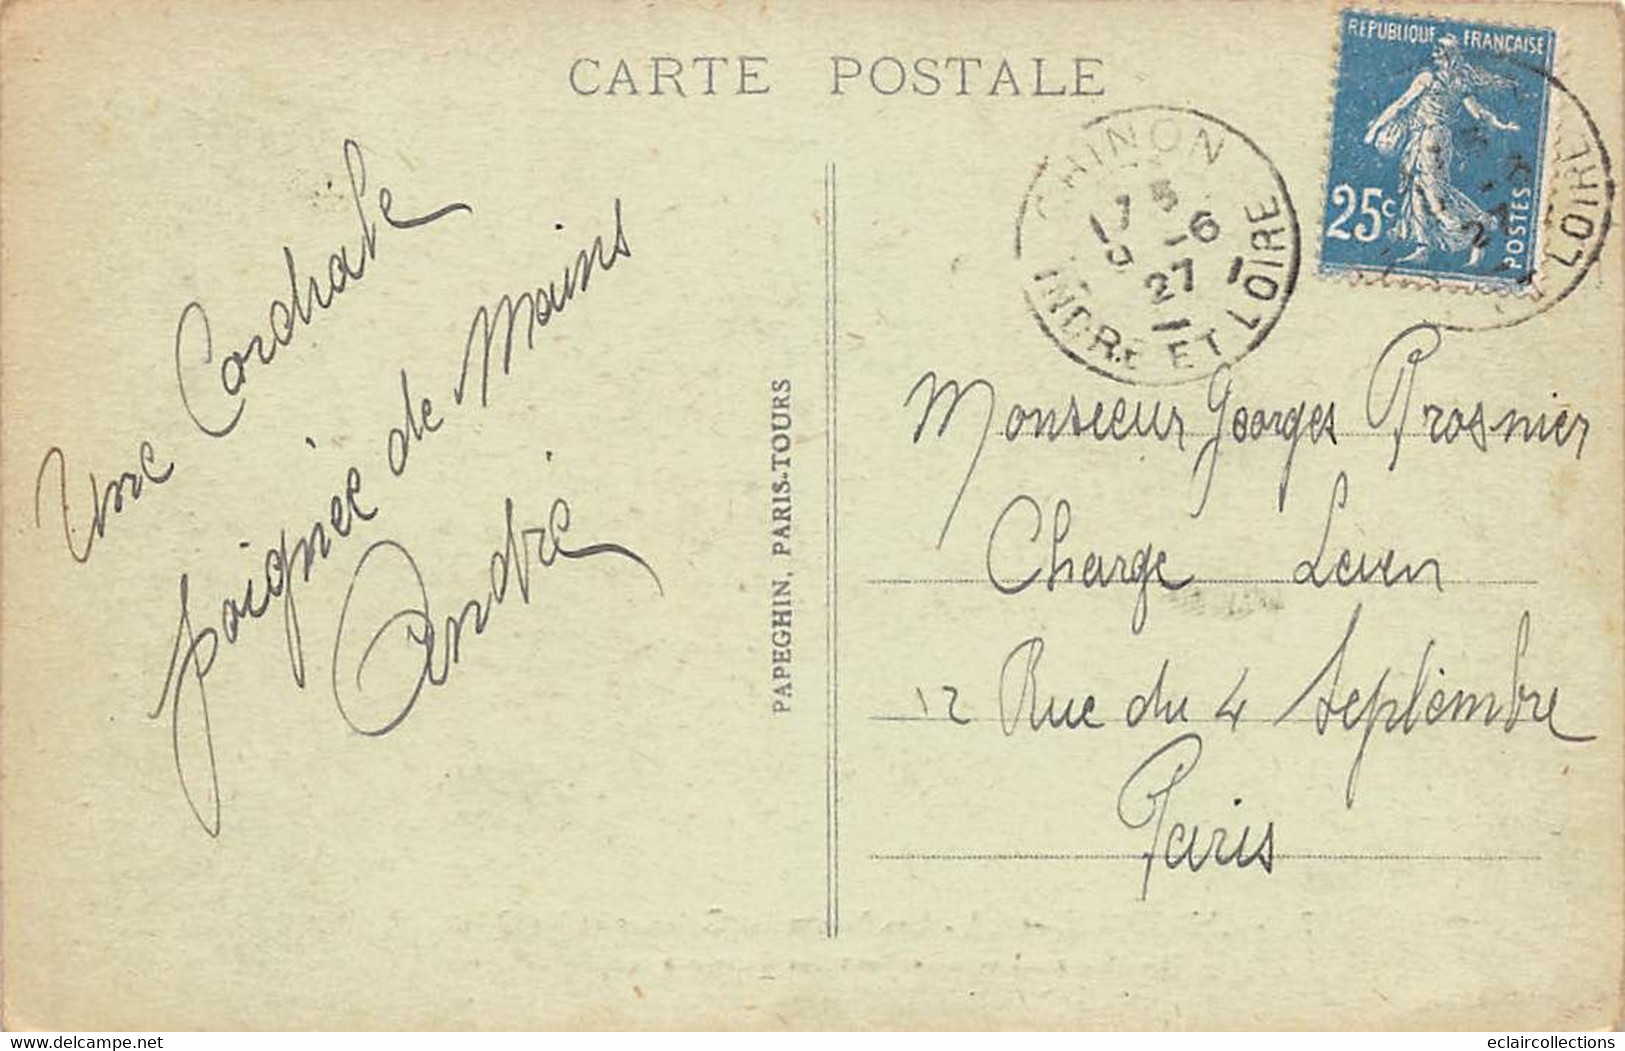 CARTE POSTALE
REPUBLIQUE FRANÇAISE
25c
POSTES
CHINON
-6
27
INDRE ET LOIRE
27
LOIRE
Une Cordiale
poignée de Mains
André
PAPEGHIN, PARIS-TOURS
Monsieur Georges Prosnier
Charge Leven
12 Rue du 4 Septembre
Paris
www.delcampe.net
eclaircollections